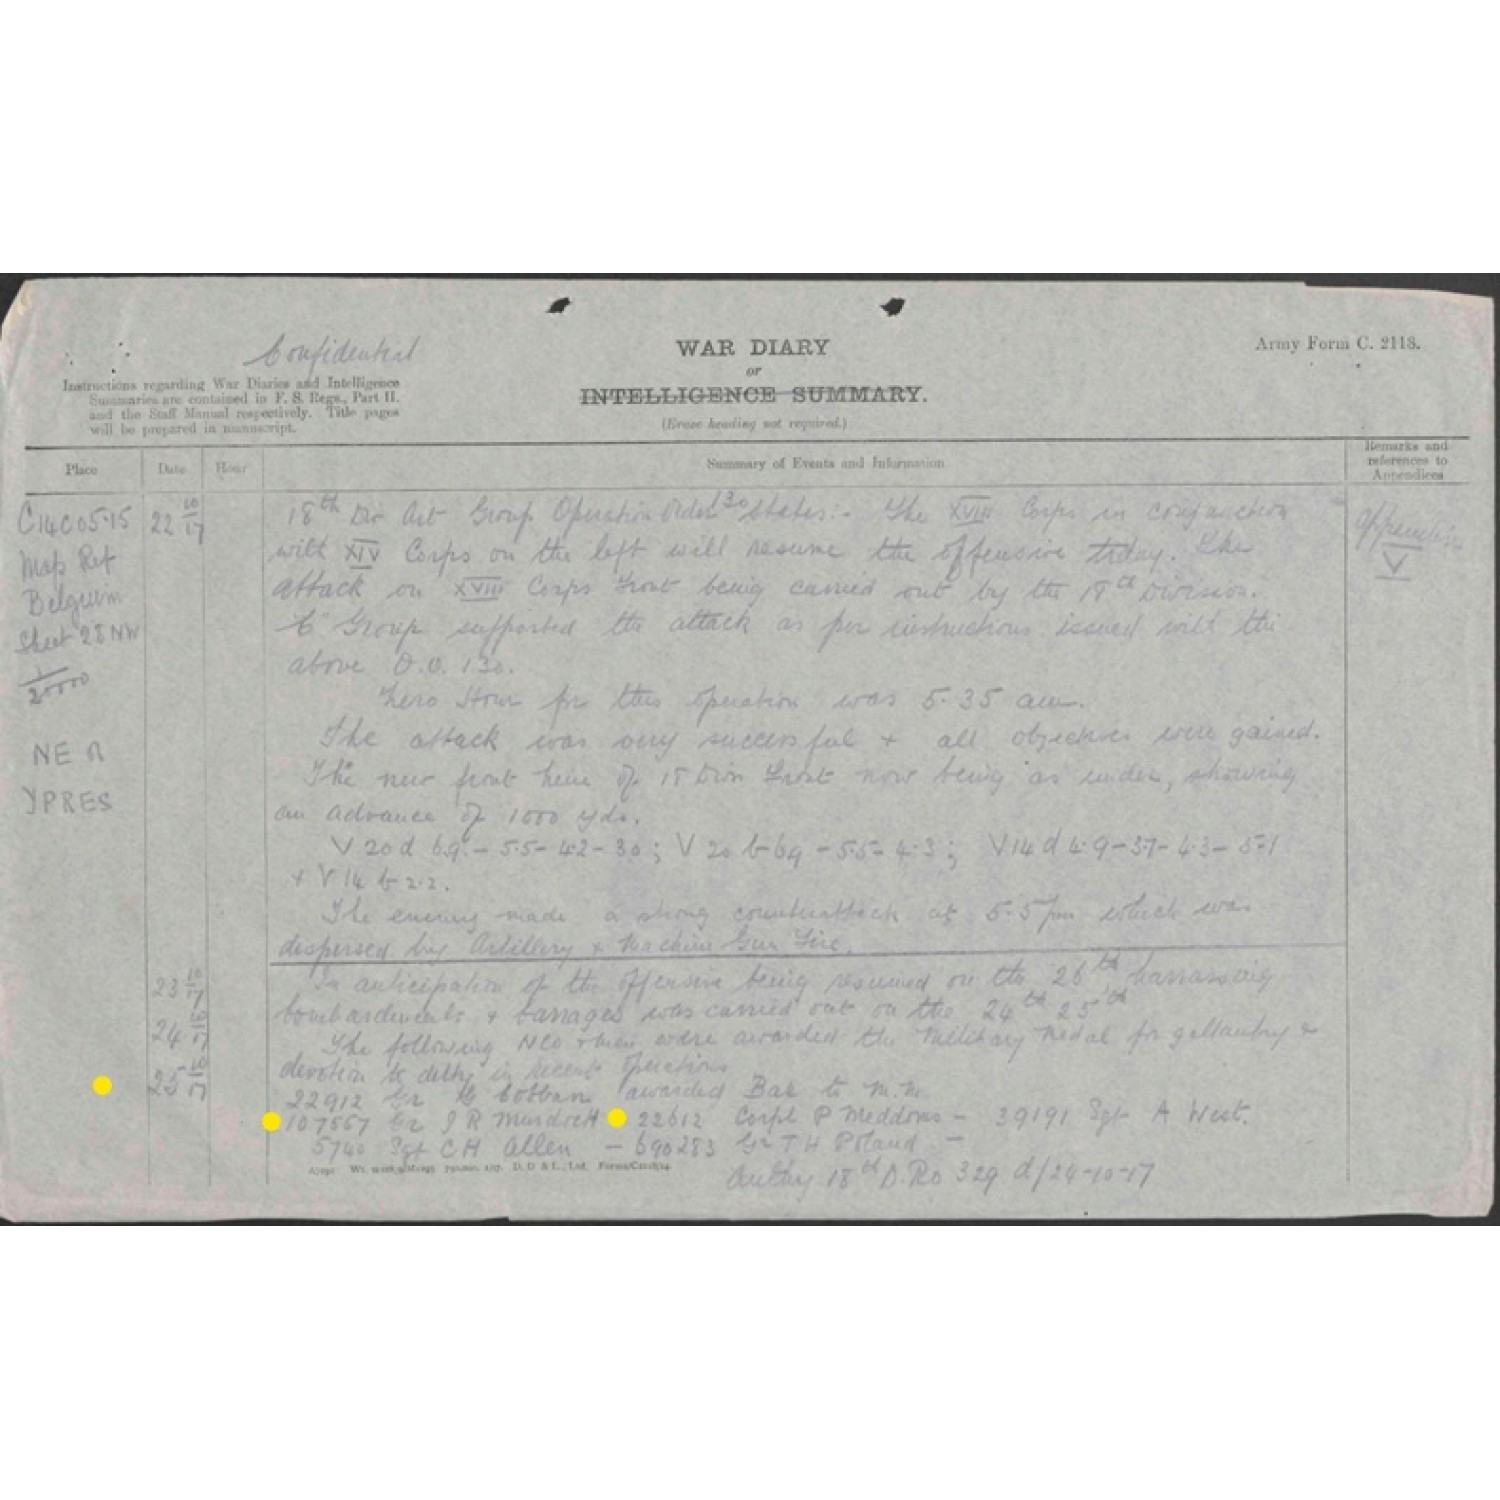 Confidential
WAR DIARY
or
INTELLIGENCE SUMMARY.
(Erase heading not required.)
Army Form C. 2118.
Instructions regarding War Diaries and Intelligence
Summaries are contained in F. S. Regs., Part II.
and the Staff Manual respectively. Title pages
will be prepared in manuscript.
Place Date Hour Summary of Events and Information Remarks and
references to
Appendices
C14C05.15 22 10/17 18th Div Art Group Operation Order 130 States:- The XVIII Corps in conjunction
with XIV Corps on the left will resume the offensive today. The
attack on XVIII Corps Front being carried out by the 18th Division.
"C" Group supported the attack as per instructions issued with the
above O.O. 130.
Appendix
V
Map Ref
Belgium
Sheet 28 NW
1/20000
NE of
YPRES
Zero Hour for this operation was 5.35 am.
The attack was very successful + all objectives were gained.
The new front line of 18 Divn Front now being as under, showing
an advance of 1000 yds.
V 20 d 6.9. - 5.5 - 4.2 - 3.0 ; V 20 b 6.9 - 5.5 - 4.3 ; V 14 d 4.9 - 3.7 - 4.3 - 5.1
+ V 14 b 2.2.
The enemy made a strong counterattack at 5.5 pm which was
dispersed by Artillery + Machine Gun Fire.
23 10/17 In anticipation of the offensive being resumed on the 26th, harrassing
bombardments + barrages was carried out on the 24th 25th
24 10/17 The following NCO + men were awarded the Military Medal for gallantry +
devotion to duty in recent operations
25 10/17 22912 Gr Cobban awarded Bar to M.M.
107557 Gr J R Murdoch 22612 Corpl P Meddoms - 39191 Sgt A West.
5740 Sgt C H Allen - 690283 Gr T H Poland -
D. D. & L., Ltd.
Authy 18th D.Ro 329 d/24-10-17